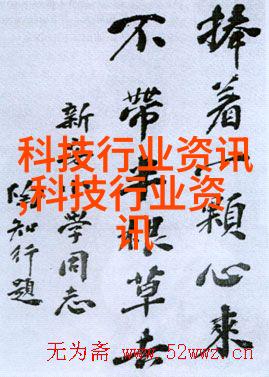 捧着一顆心來
不帶半根草去
新安小学同志
陶知行題
科技行业资讯
,科技行业资
讯
无为斋 www.52wwz.cn